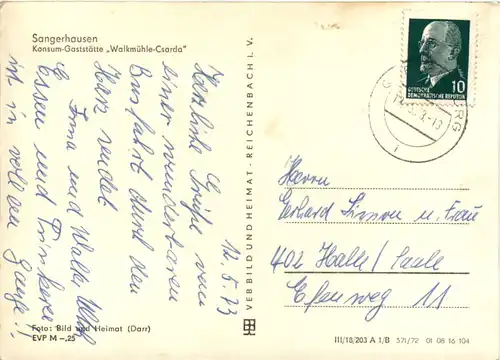 Sangerhausen
Konsum-Gaststätte „Walkmühle-Csarda"
12.5.73
Herzliche Grüße von
einer wunderbaren
Busfahrt durch den
Harz sendet
Irma und Walter
Essen und Trinken
ist in vollen Gange!!
Foto: Bild und Heimat (Darr)
EVP M –,25
VEB BILD UND HEIMAT · REICHENBACH i. V.
10
DEUTSCHE
DEMOKRATISCHE REPUBLIK
Herrn
Gerhard Simon u. Frau
402 Halle/Saale
Efeuweg 11
III/18/203 A 1/B 571/72 01 08 16 104